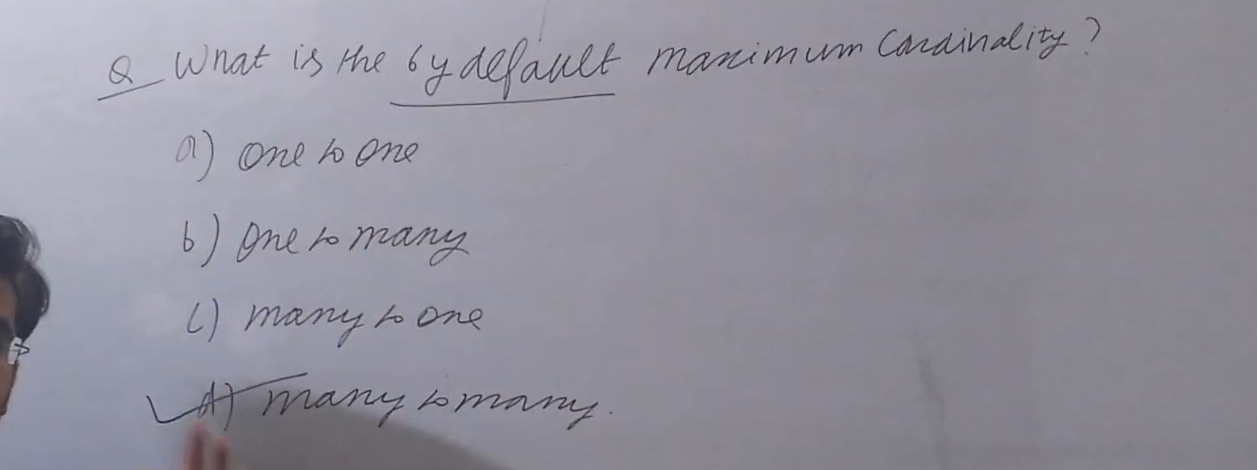 Q What is the by default maximum Cardinality?
a) one to one
b) one to many
c) many to one
d) many to many.